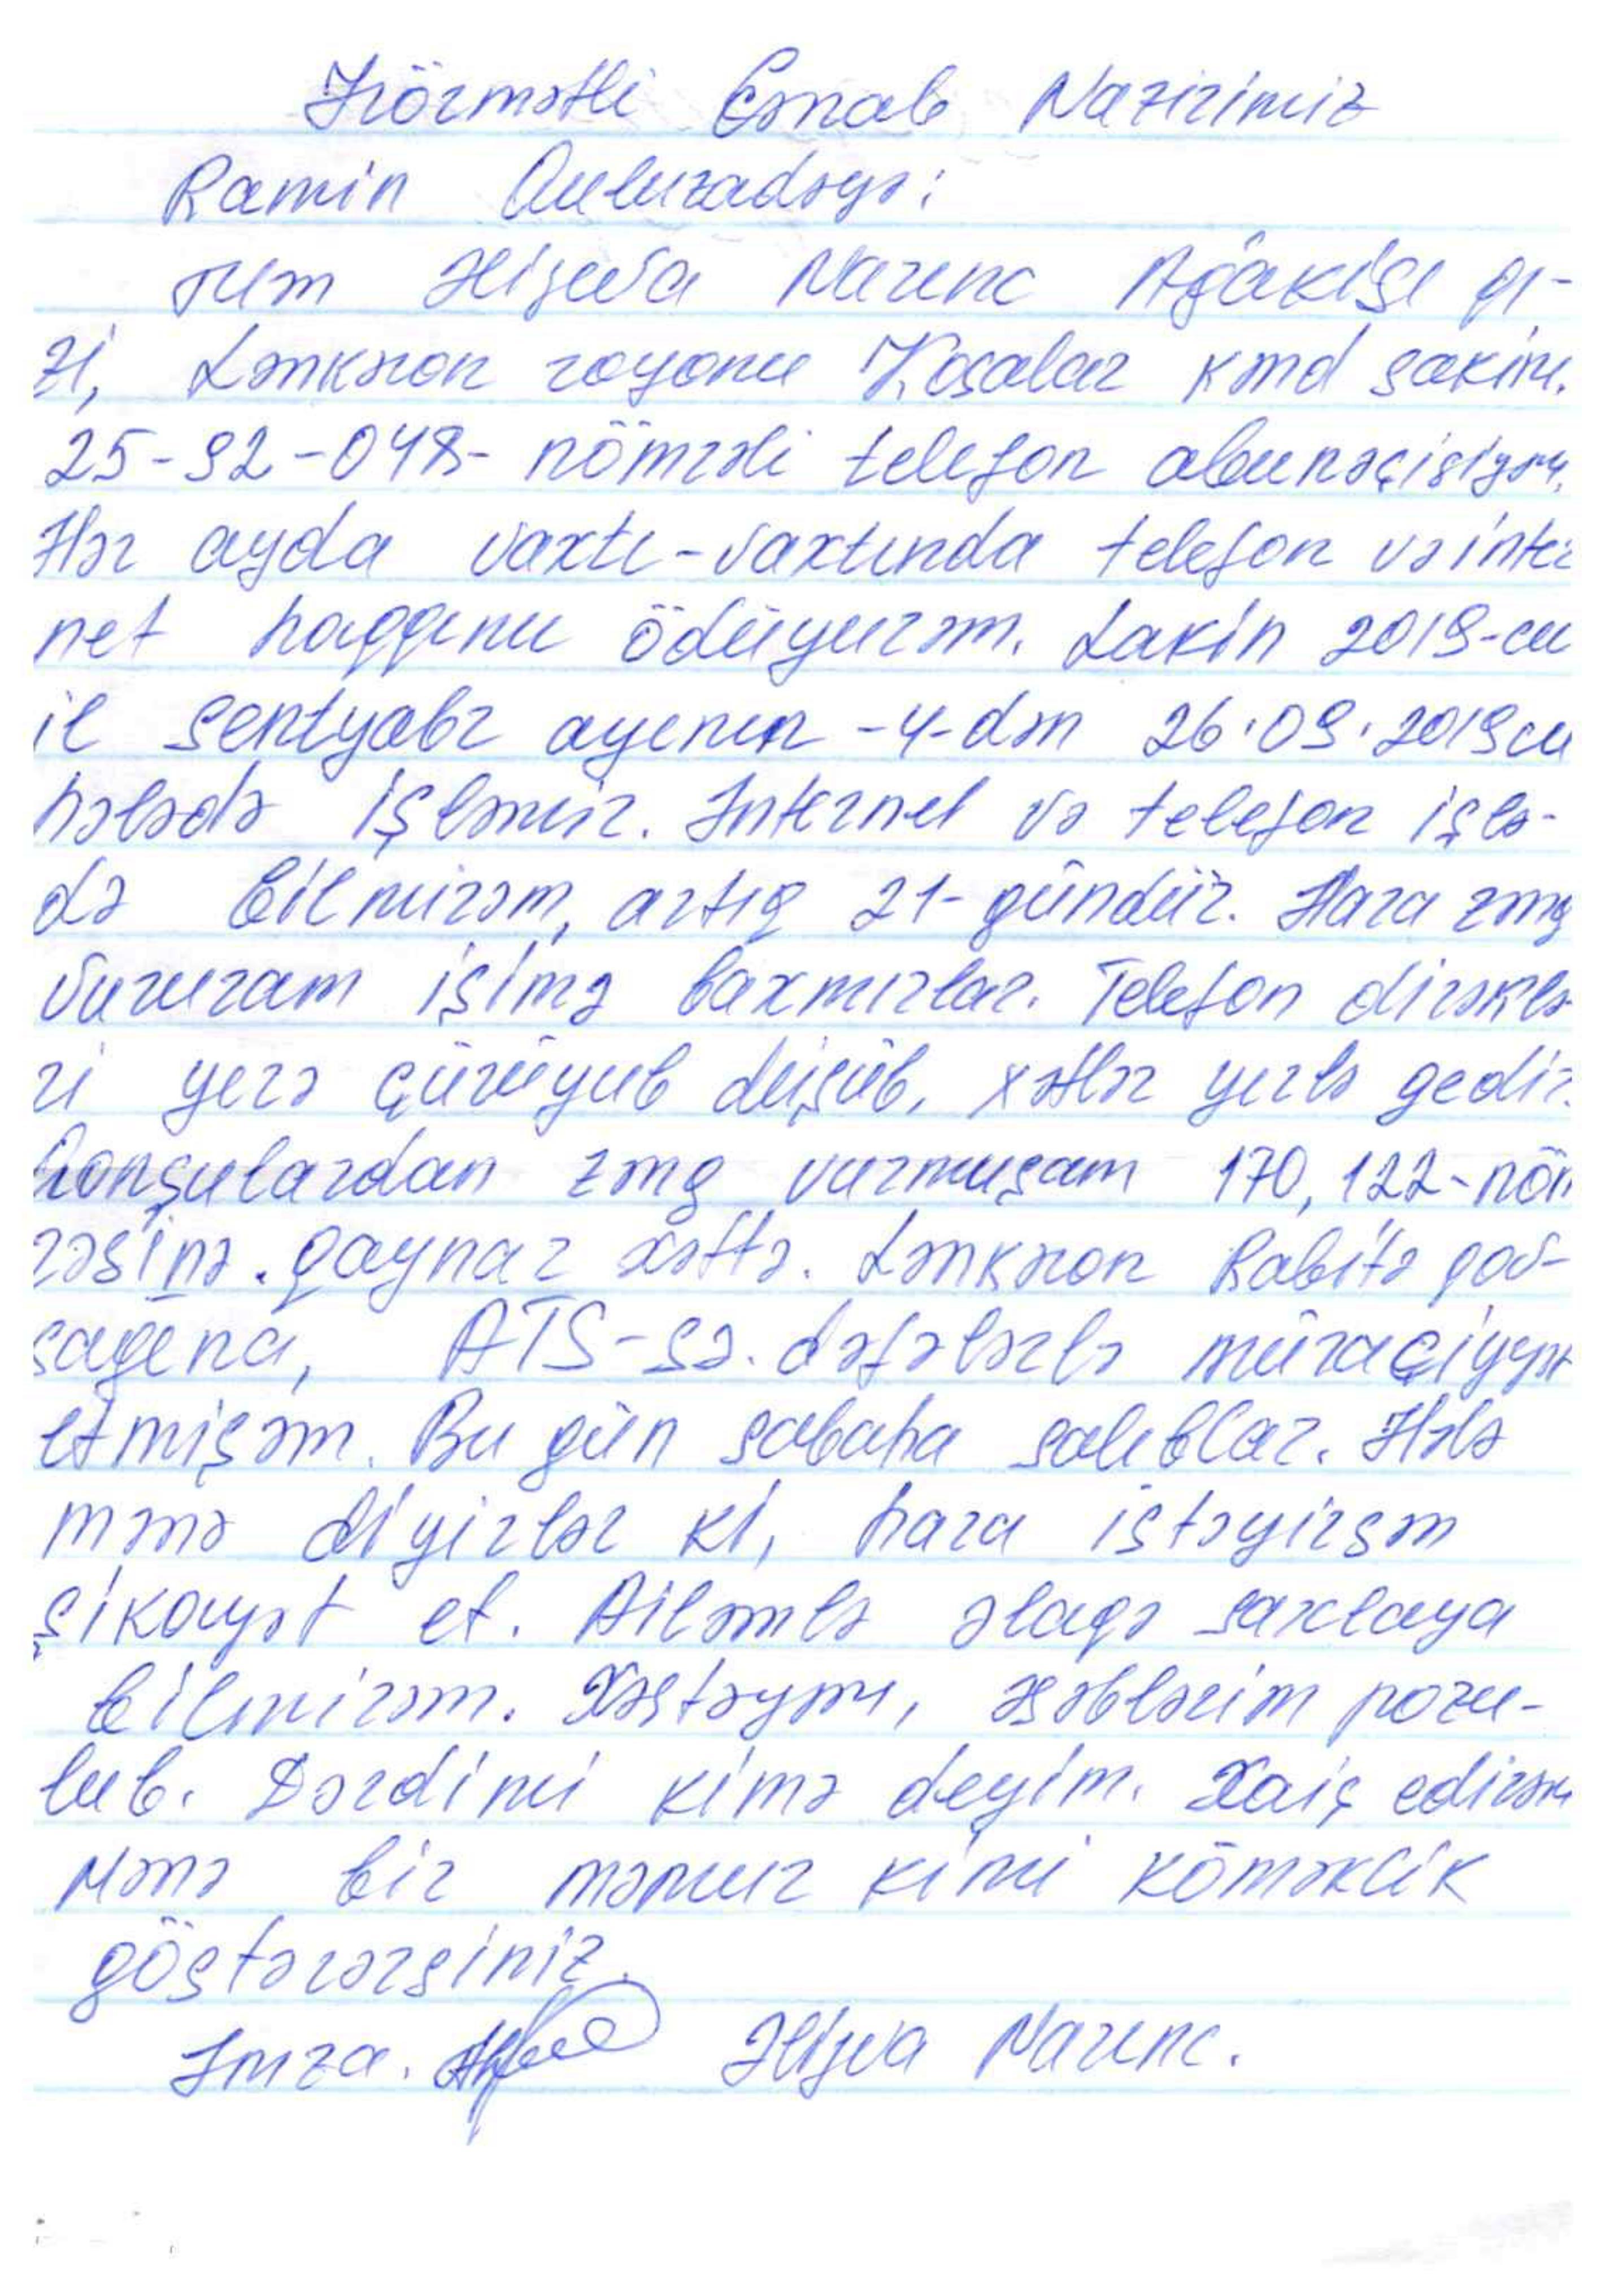 Hörmətli Cənab Nazirimiz
Ramin Quluzadəyə:
Mən Əliyeva Narınc Ağakişi qı-
zı, Lənkəran rayonu Koşalar kənd sakini.
25-92-048- nömrəli telefon abunəçisiyəm.
Hər ayda vaxtı-vaxtında telefon və inter
net haqqını ödüyurəm. Lakin 2019-cu
il sentyabr ayının -4-dən 26.09.2019cu
hələdə işləmir. İnternet və telefon işlə-
də bilmirəm, artıq 21-gündür. Hara zəng
vururam işimə baxmırlar. Telefon dirəklə
ri yerə çürüyub düşüb, xətlər yerlə gedir.
Qonşulardan zəng vurmuşam 170, 122-nöm
rəsinə. qaynar xəttə. Lənkəran Rabitə qov-
sağına, ATS-sə. dəfələrlə müraçiyyət
etmişəm. Bu gün sabaha salıblar. Hələ
mənə diyirlər ki, hara istəyirsən
şikayət et. Ailəmlə əlaqə saxlaya
bilmirəm. Xəstəyəm, əsəblərim pozu-
lub. Dərdimi kimə deyim. Xaiş edirəm
Mənə bir məmur kimi köməklik
göstərərsiniz.
İmza. Əliyeva Narınc.